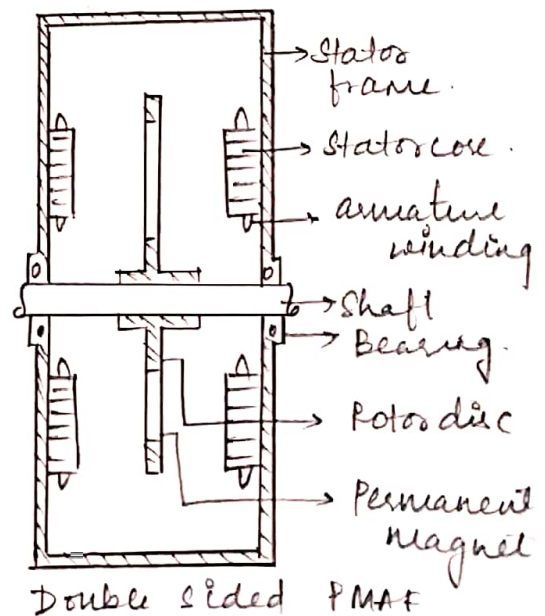 Stator
frame.
Stator core.
armature
winding
Shaft
Bearing.
Rotor disc
Permanent
magnet
Double Sided PMAF